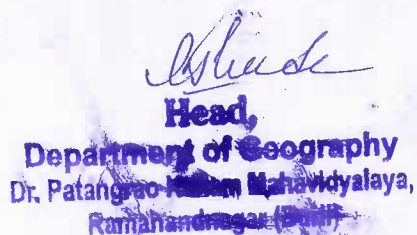 Head,
Department of Geography
Dr. Patangrao Kadam Mahavidyalaya,
Ramanandnagar (Burli)